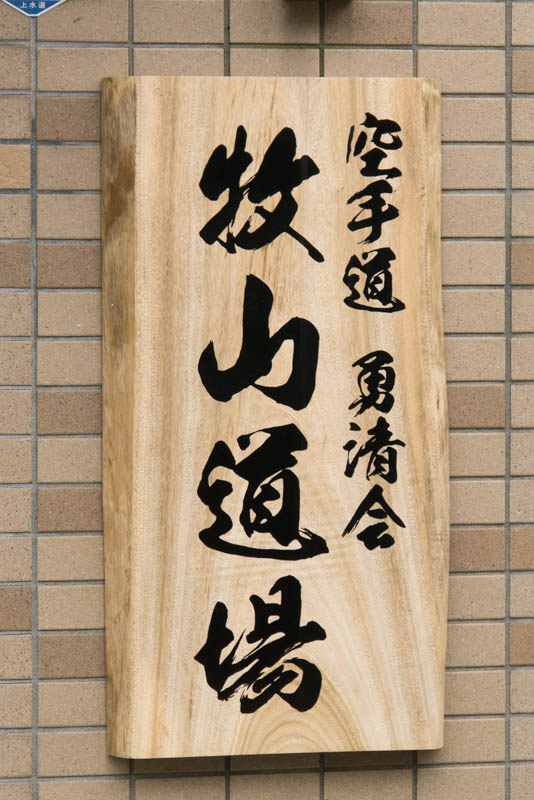 上水道
空手道 勇清会
牧山道場